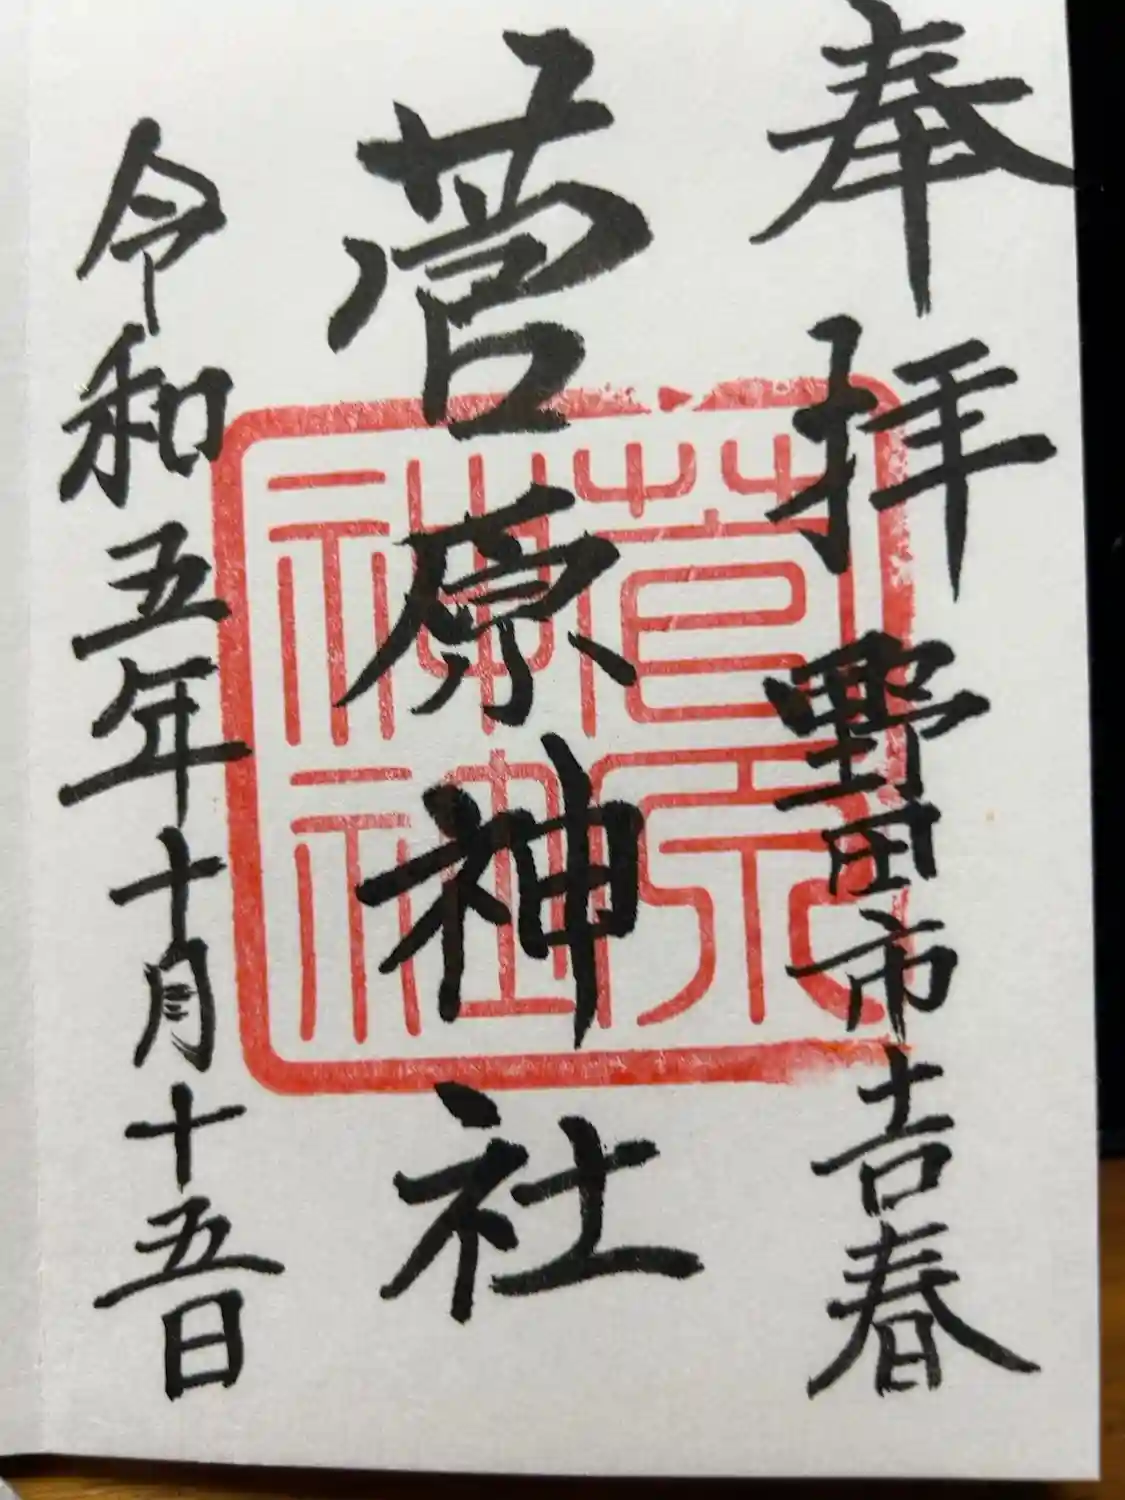 奉拝 野田市吉春
菅原神社
菅原
神社
令和五年十月十五日